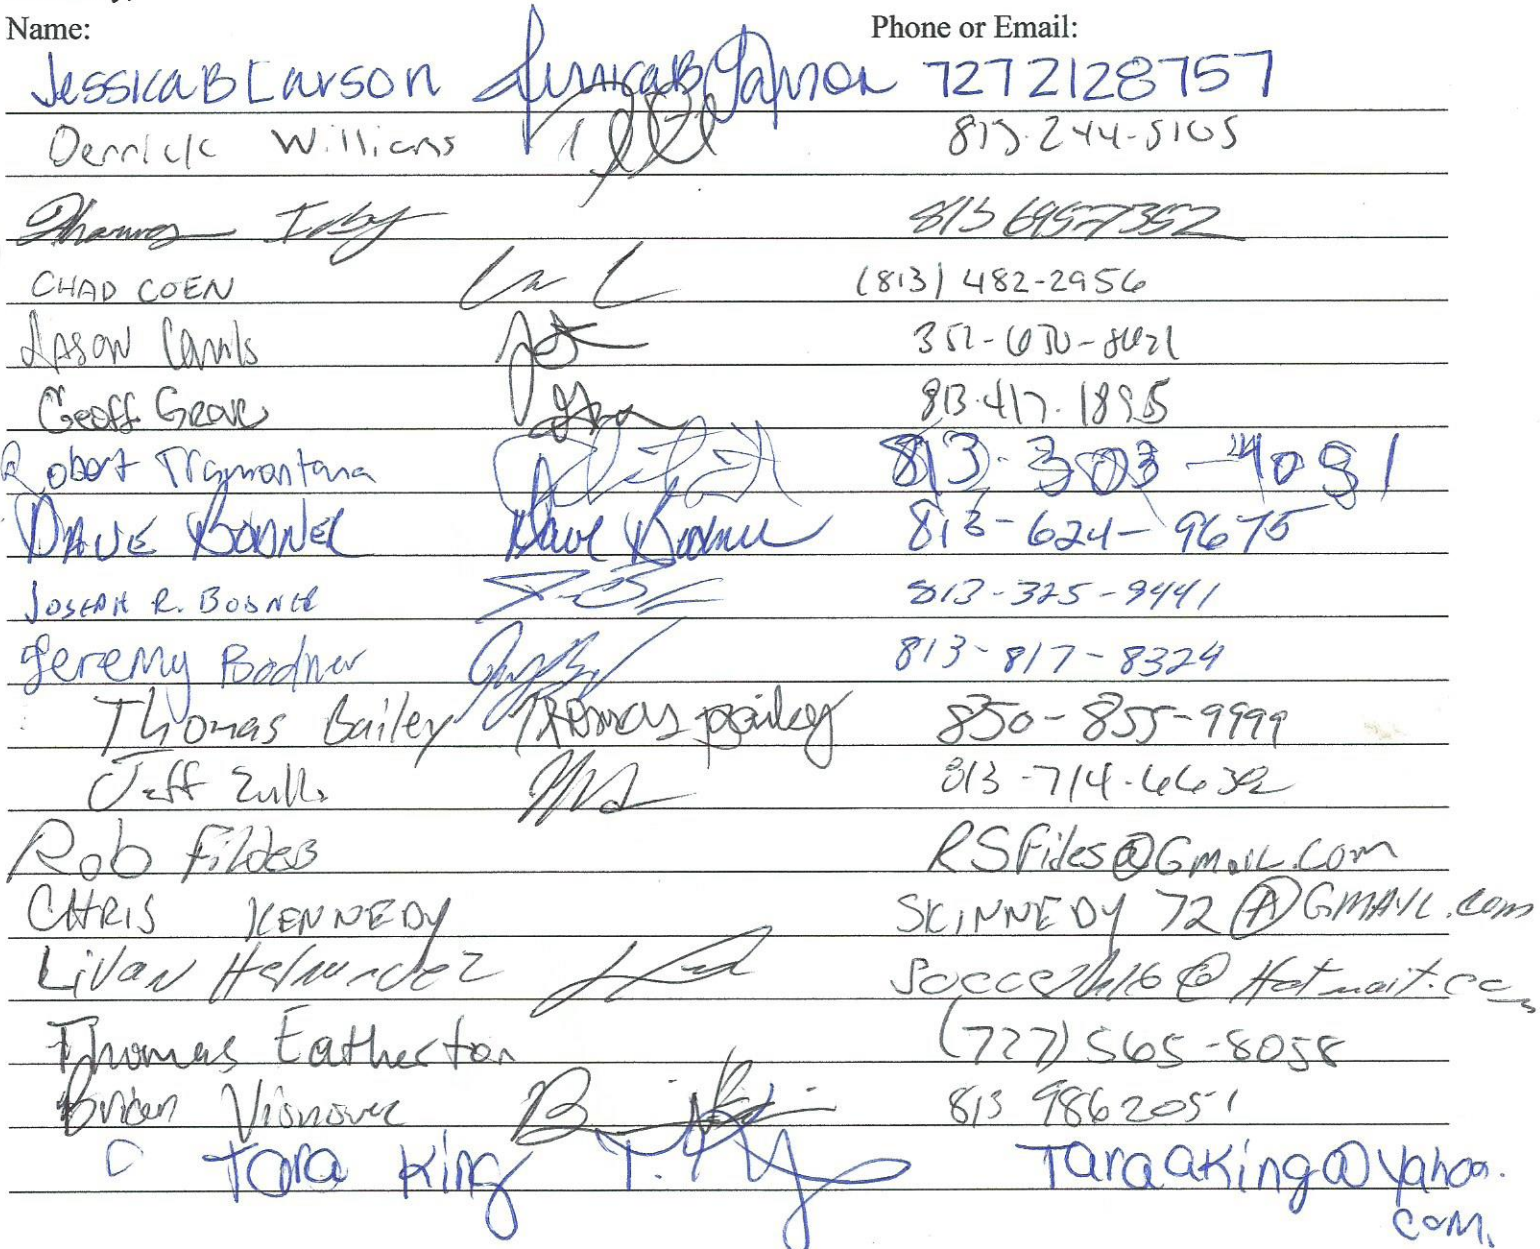 Name: Phone or Email:
Jessica B Larson Jessica B Larson 7272128757
Derrick Williams 813-244-5105
Thomas Irby 813 695-7352
CHAD COEN (813) 482-2956
JASON
Geoff 813.417.1895
Robert Tramontana 813-303-4091
DAVE BODNER Dave Bodner 813-624-9675
JOSEPH R. BODNER 813-325-9441
Jeremy Bodner 813-817-8324
Thomas Bailey Thomas Bailey 850-855-9999
Jeff 813-714-6632
Rob Fildes RSFiles@Gmail.com
CHRIS KENNEDY SKINNEDY72@GMAIL.com
Livan Hernandez
Thomas Eatherton (727) 565-8058
Brian 813 986 2051
Tara King T. King Taraaking@yahoo.
com.